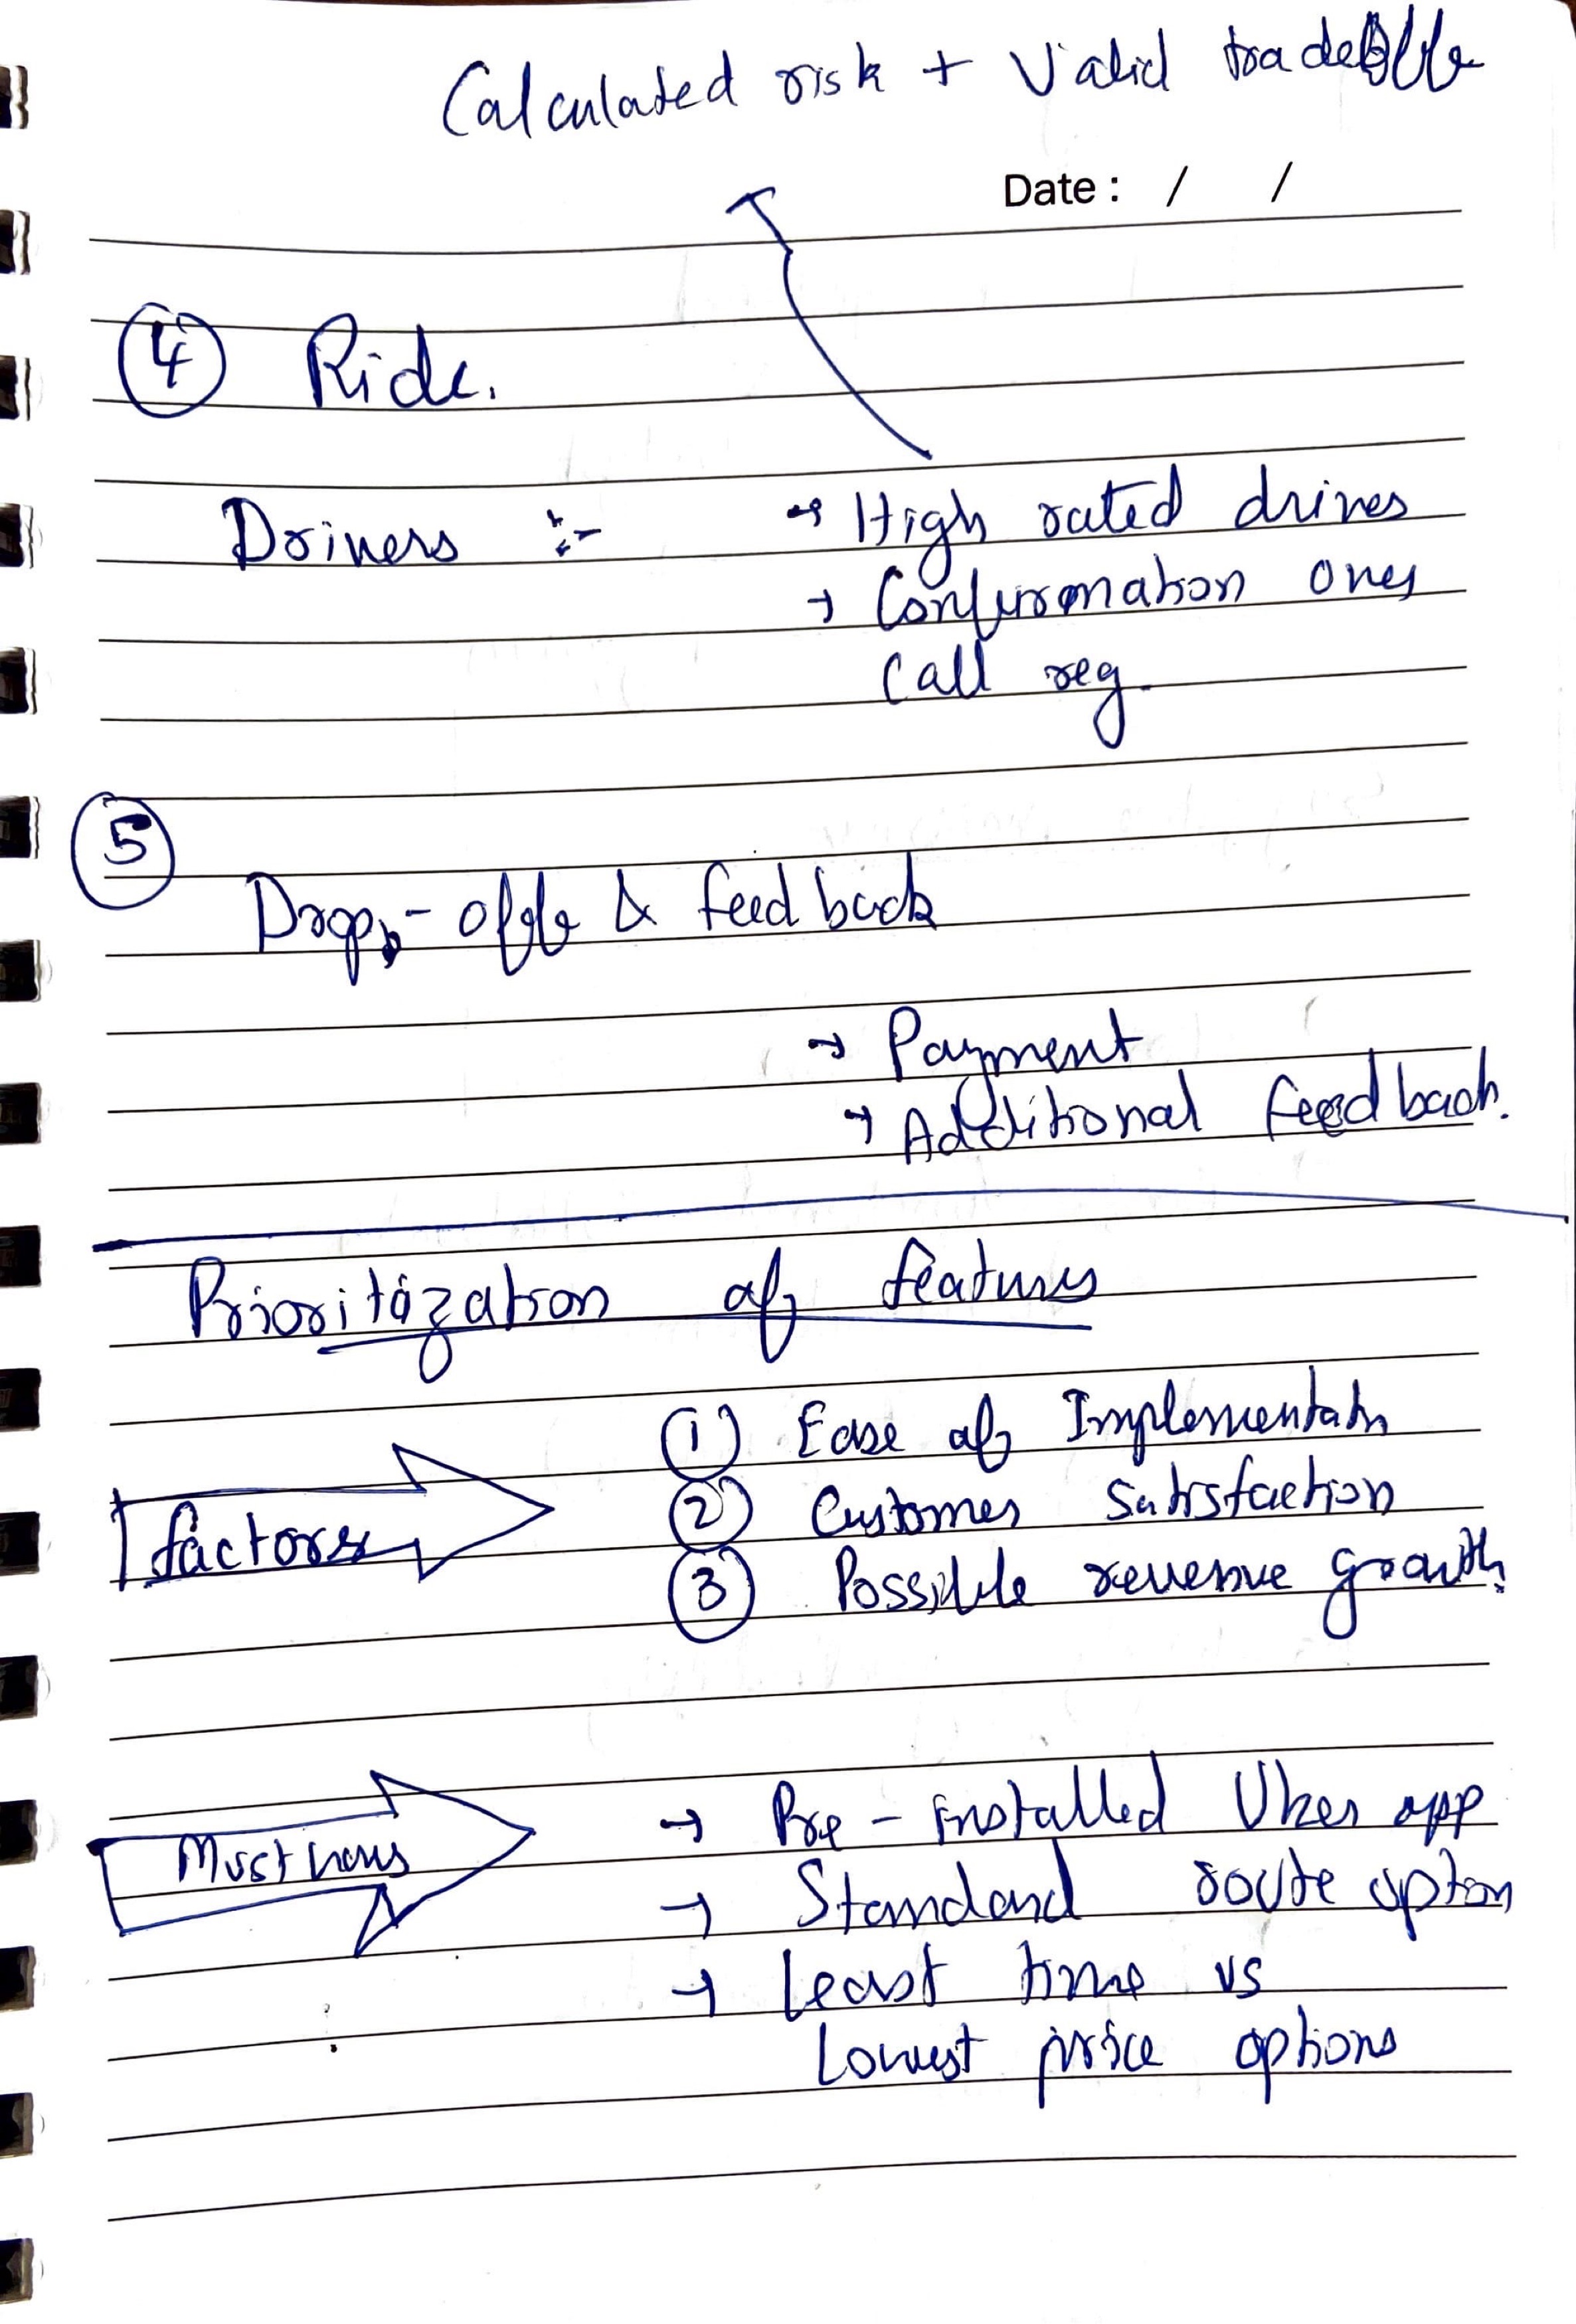 Calculated risk + Valid tradeoffs
Date : / /
4 Ride.
Drivers :- → High rated drivers
→ Confirmation ones
Call reg.
5
Drop-off & feedback
→ Payment
→ Additional feedback.
Prioritization of features
factors
1 Ease of Implementatn
2 Customer Satisfaction
3 Possible revenue growth
Must haves
→ Pre-installed Uber app
→ Standard route option
→ Least time vs
Lowest price options